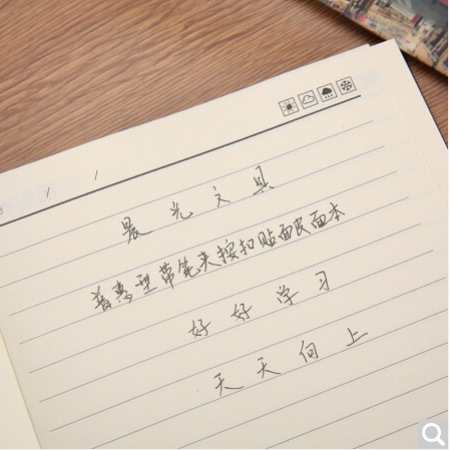 / /
晨光文具
普惠型带笔夹按扣贴面皮面本
好好学习
天天向上